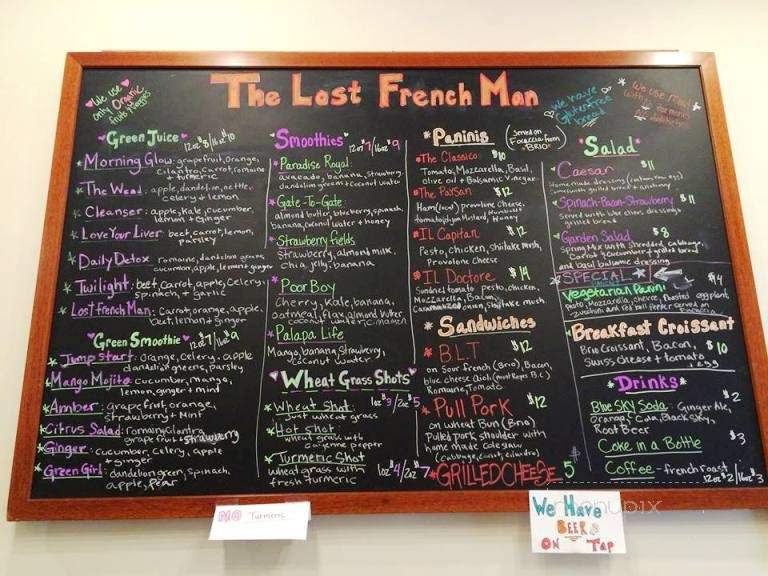 The Lost French Man
We use
only Organic
fruits/veggies
Green Juice 12oz 8/16oz 10
Morning Glow: grapefruit, orange,
cilantro, carrot, romaine
+ turmeric
The Weed: apple, dandelion, nettle,
celery + lemon
Cleanser: apple, kale, cucumber,
lemon + ginger
Love Your Liver: beet, carrot, lemon,
parsley
Daily Detox romaine, dandelion greens,
cucumber, apple, lemon + ginger
Twilight: beet, carrot, apple, celery,
spinach, + garlic
Lost French Man: Carrot, orange, apple,
beet, lemon + ginger
Green Smoothie
Jump start: orange, celery, apple
dandelion greens, parsley
Mango Mojito: cucumber, mango,
lemon, ginger + mint
Amber: grapefruit, orange,
strawberry + Mint
Citrus Salad: romaine, cilantro,
grapefruit + strawberry
Ginger: cucumber, celery, apple
+ ginger
Green Girl: dandelion green, spinach,
apple, pear
Smoothies 12oz 7/16oz 9
Paradise Royal:
avocado, banana, strawberry,
dandelion greens + coconut water
Gate-To-Gate:
almond butter, blueberry, spinach
banana, coconut water + honey
Strawberry fields
Strawberry, almond milk,
chia, jelly, banana
Poor Boy
Cherry, Kale, banana,
oatmeal, flax, almond butter
coconut water, cinnamon
Palapa Life
Mango, banana, strawberry,
coconut water
Wheat Grass Shots
Wheat Shot: 1oz 3/2oz 5
shot wheat grass
Hot Shot:
wheat grass with
cayenne pepper
Turmeric Shot
wheat grass with 1oz 4/2oz 7
fresh turmeric
Paninis (served on
Focaccia from
"BRIO")
The Classico: $10
Tomato, Mozzarella, Basil,
olive oil + Balsamic Vinegar
The Paisan $12
Ham (local) provolone Cheese,
tomato, Mustard, Honey
Il Capitan $12
Pesto, chicken, shiitake mush,
Provolone Cheese
Il Doctore $14
Sundried tomato pesto, chicken,
Mozzarella, Bacon,
onion, shiitake mush
Sandwiches
B.L.T $12
on Sour french (Brio), Bacon,
blue cheese Aioli (Point Reyes B.C)
Romaine, Tomato
Pull Pork $12
on Wheat Bun (Brio)
Pulled pork shoulder with
home made coleslaw
(Cabbage, carrot, cilantro)
GRILLED CHEESE 5
We have
Glutenfree
bread
We use
Salad
Caesar $11
Homemade dressing
with grilled bread + anchovy
Spinach-Bacon-Strawberry $11
Served with blue cheese dressing +
grilled bread
Garden Salad $8
Spring Mix with shredded cabbage,
carrot + cucumber + grilled bread
and basil balsamic dressing
SPECIAL
Vegetarian Panini $14
pesto, Mozzarella, chevre, Roasted eggplant,
zucchini and red bell pepper served on
Focaccia
Breakfast Croissant
Brio Croissant, Bacon, $10
Swiss cheese + tomato
+ egg
Drinks
Blue Sky Soda: Ginger Ale, $2
orange, Cola, Black Sky,
Root Beer
Coke in a Bottle $3
Coffee - french roast
12oz $2/16oz $3
NO Turmeric
We Have
BEERS
ON Tap
menupix